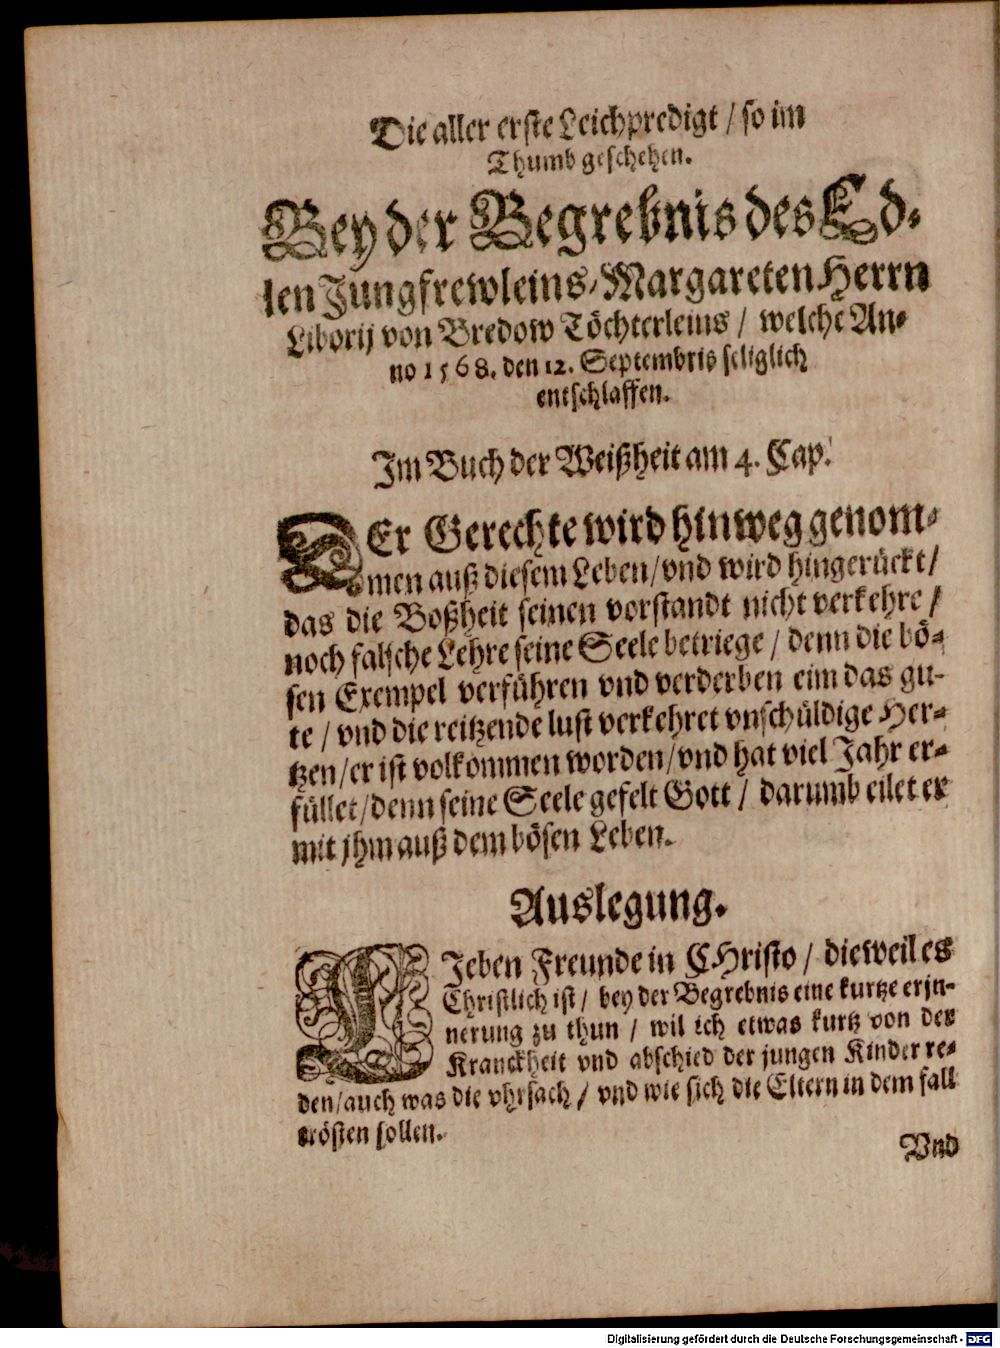 Die aller erste Leichpredigt / so im
Thumb geschehen.
Bey der Begrebnis des Ed-
len Jungfrewleins / Margareten Herrn
Liborij von Bredow Töchterleins / welche An-
no 1568. den 12. Septembris seliglich
entschlaffen.
Im Buch der Weißheit am 4. Cap.
DEr Gerechte wird hinweg genom-
men auß diesem Leben / vnd wird hingerückt /
das die Boßheit seinen vorstandt nicht verkehre /
noch falsche Lehre seine Seele betriege / denn die bö-
sen Exempel verführen vnd verderben eim das gu-
te / vnd die reitzende lust verkehret vnschüldige Her-
tzen / er ist volkommen worden / vnd hat viel Jahr er-
füllet / denn seine Seele gefelt Gott / darumb eilet er
mit jhm auß dem bösen Leben.
Auslegung.
LIeben Freunde in CHristo / dieweil es
Christlich ist / bey der Begrebnis eine kurtze erjn-
nerung zu thun / wil ich etwas kurtz von der
Kranckheit vnd abschied der jungen Kinder re-
den / auch was die vhrsach / vnd wie sich die Eltern in dem fall
trösten sollen.
Vnd
Digitalisierung gefördert durch die Deutsche Forschungsgemeinschaft - DFG